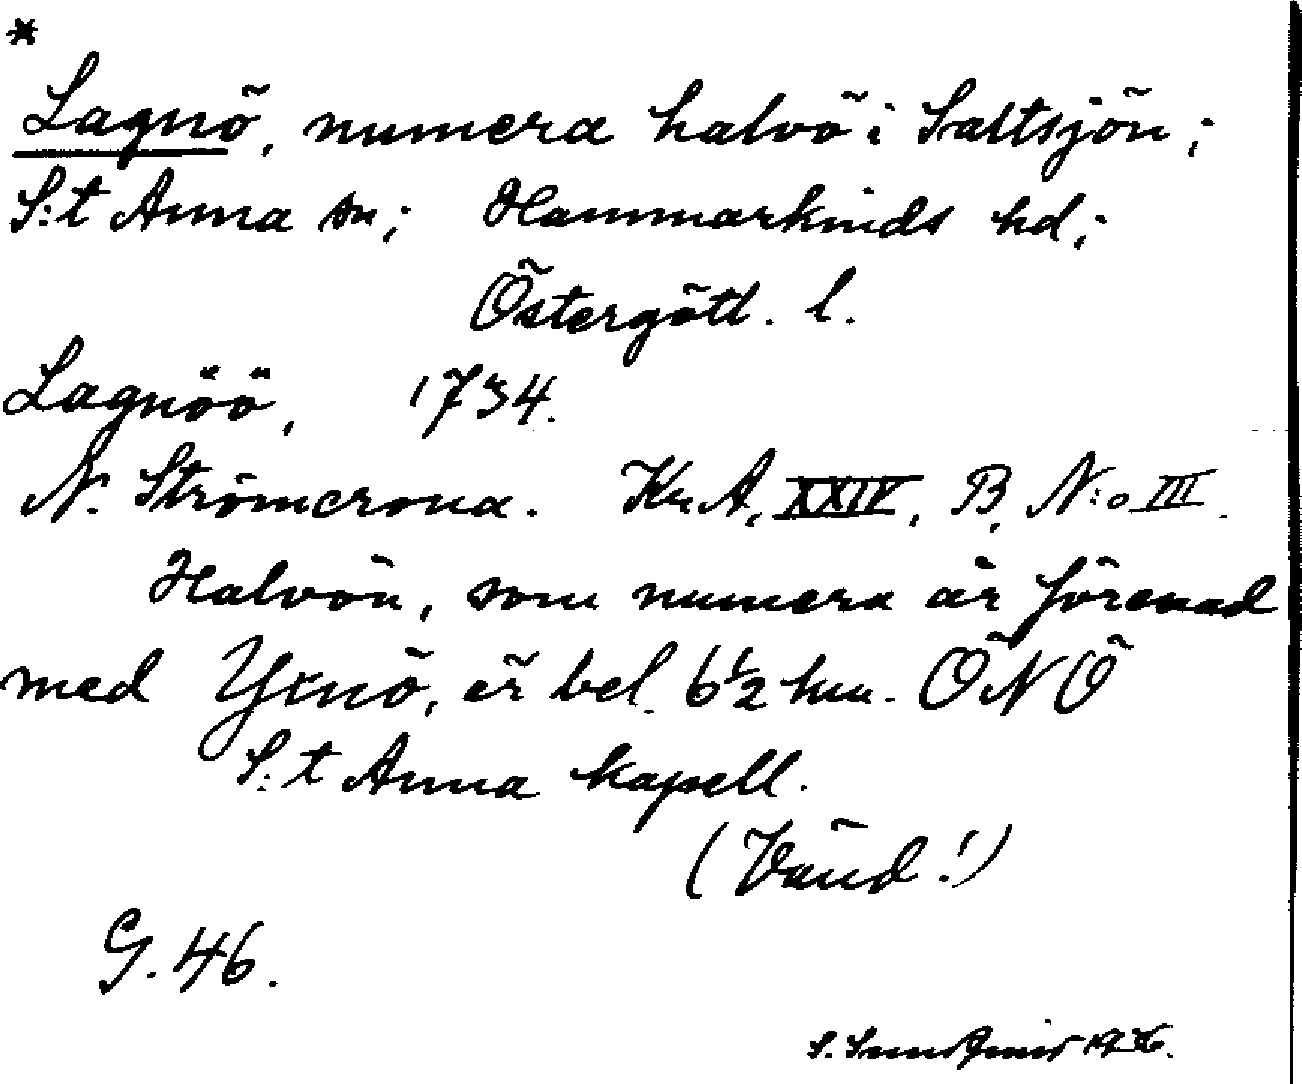 *
Lagnö, numera halvö i Saltsjön;
S:t Anna sn; Hammarkinds hd;
Östergötl. l.
Lagnöö, 1734.
N. Strömcrona. Kr. A. XXIV, B, N:o III.
Halvön, som numera är förenad
med Yxnö, är bel. 6 1/2 km. ÖNÖ
S:t Anna kapell.
(Vänd!)
G. 46.
S. 1936.